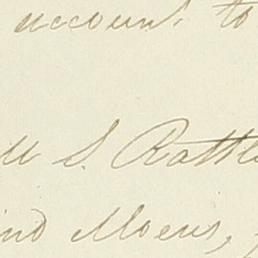 account to
S. Rattle
Moens,